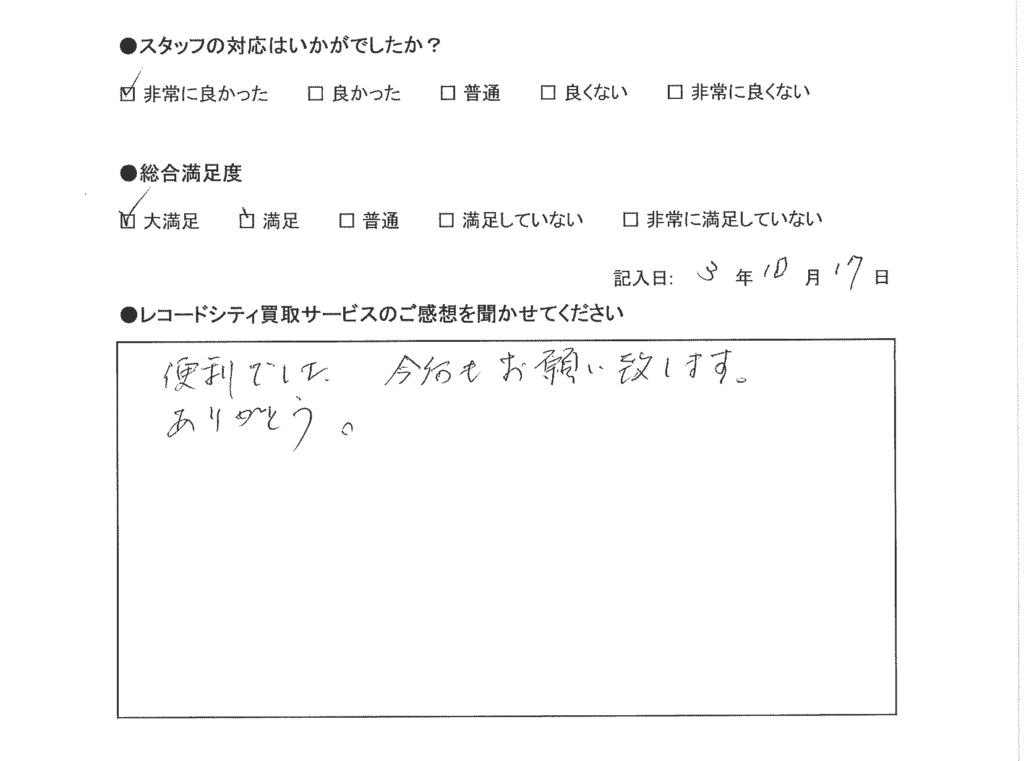 ●スタッフの対応はいかがでしたか？
☑ 非常に良かった □ 良かった □ 普通 □ 良くない □ 非常に良くない
●総合満足度
☑ 大満足 □ 満足 □ 普通 □ 満足していない □ 非常に満足していない
記入日: 3 年 10 月 17 日
●レコードシティ買取サービスのご感想を聞かせてください
便利でした 今後もお願い致します。
ありがとう。